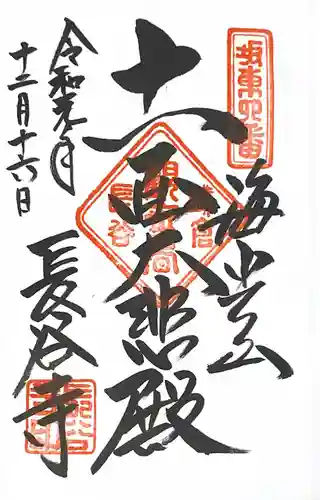 坂東四番
海光山
十一面大悲殿
長谷寺
令和元年
十二月十六日